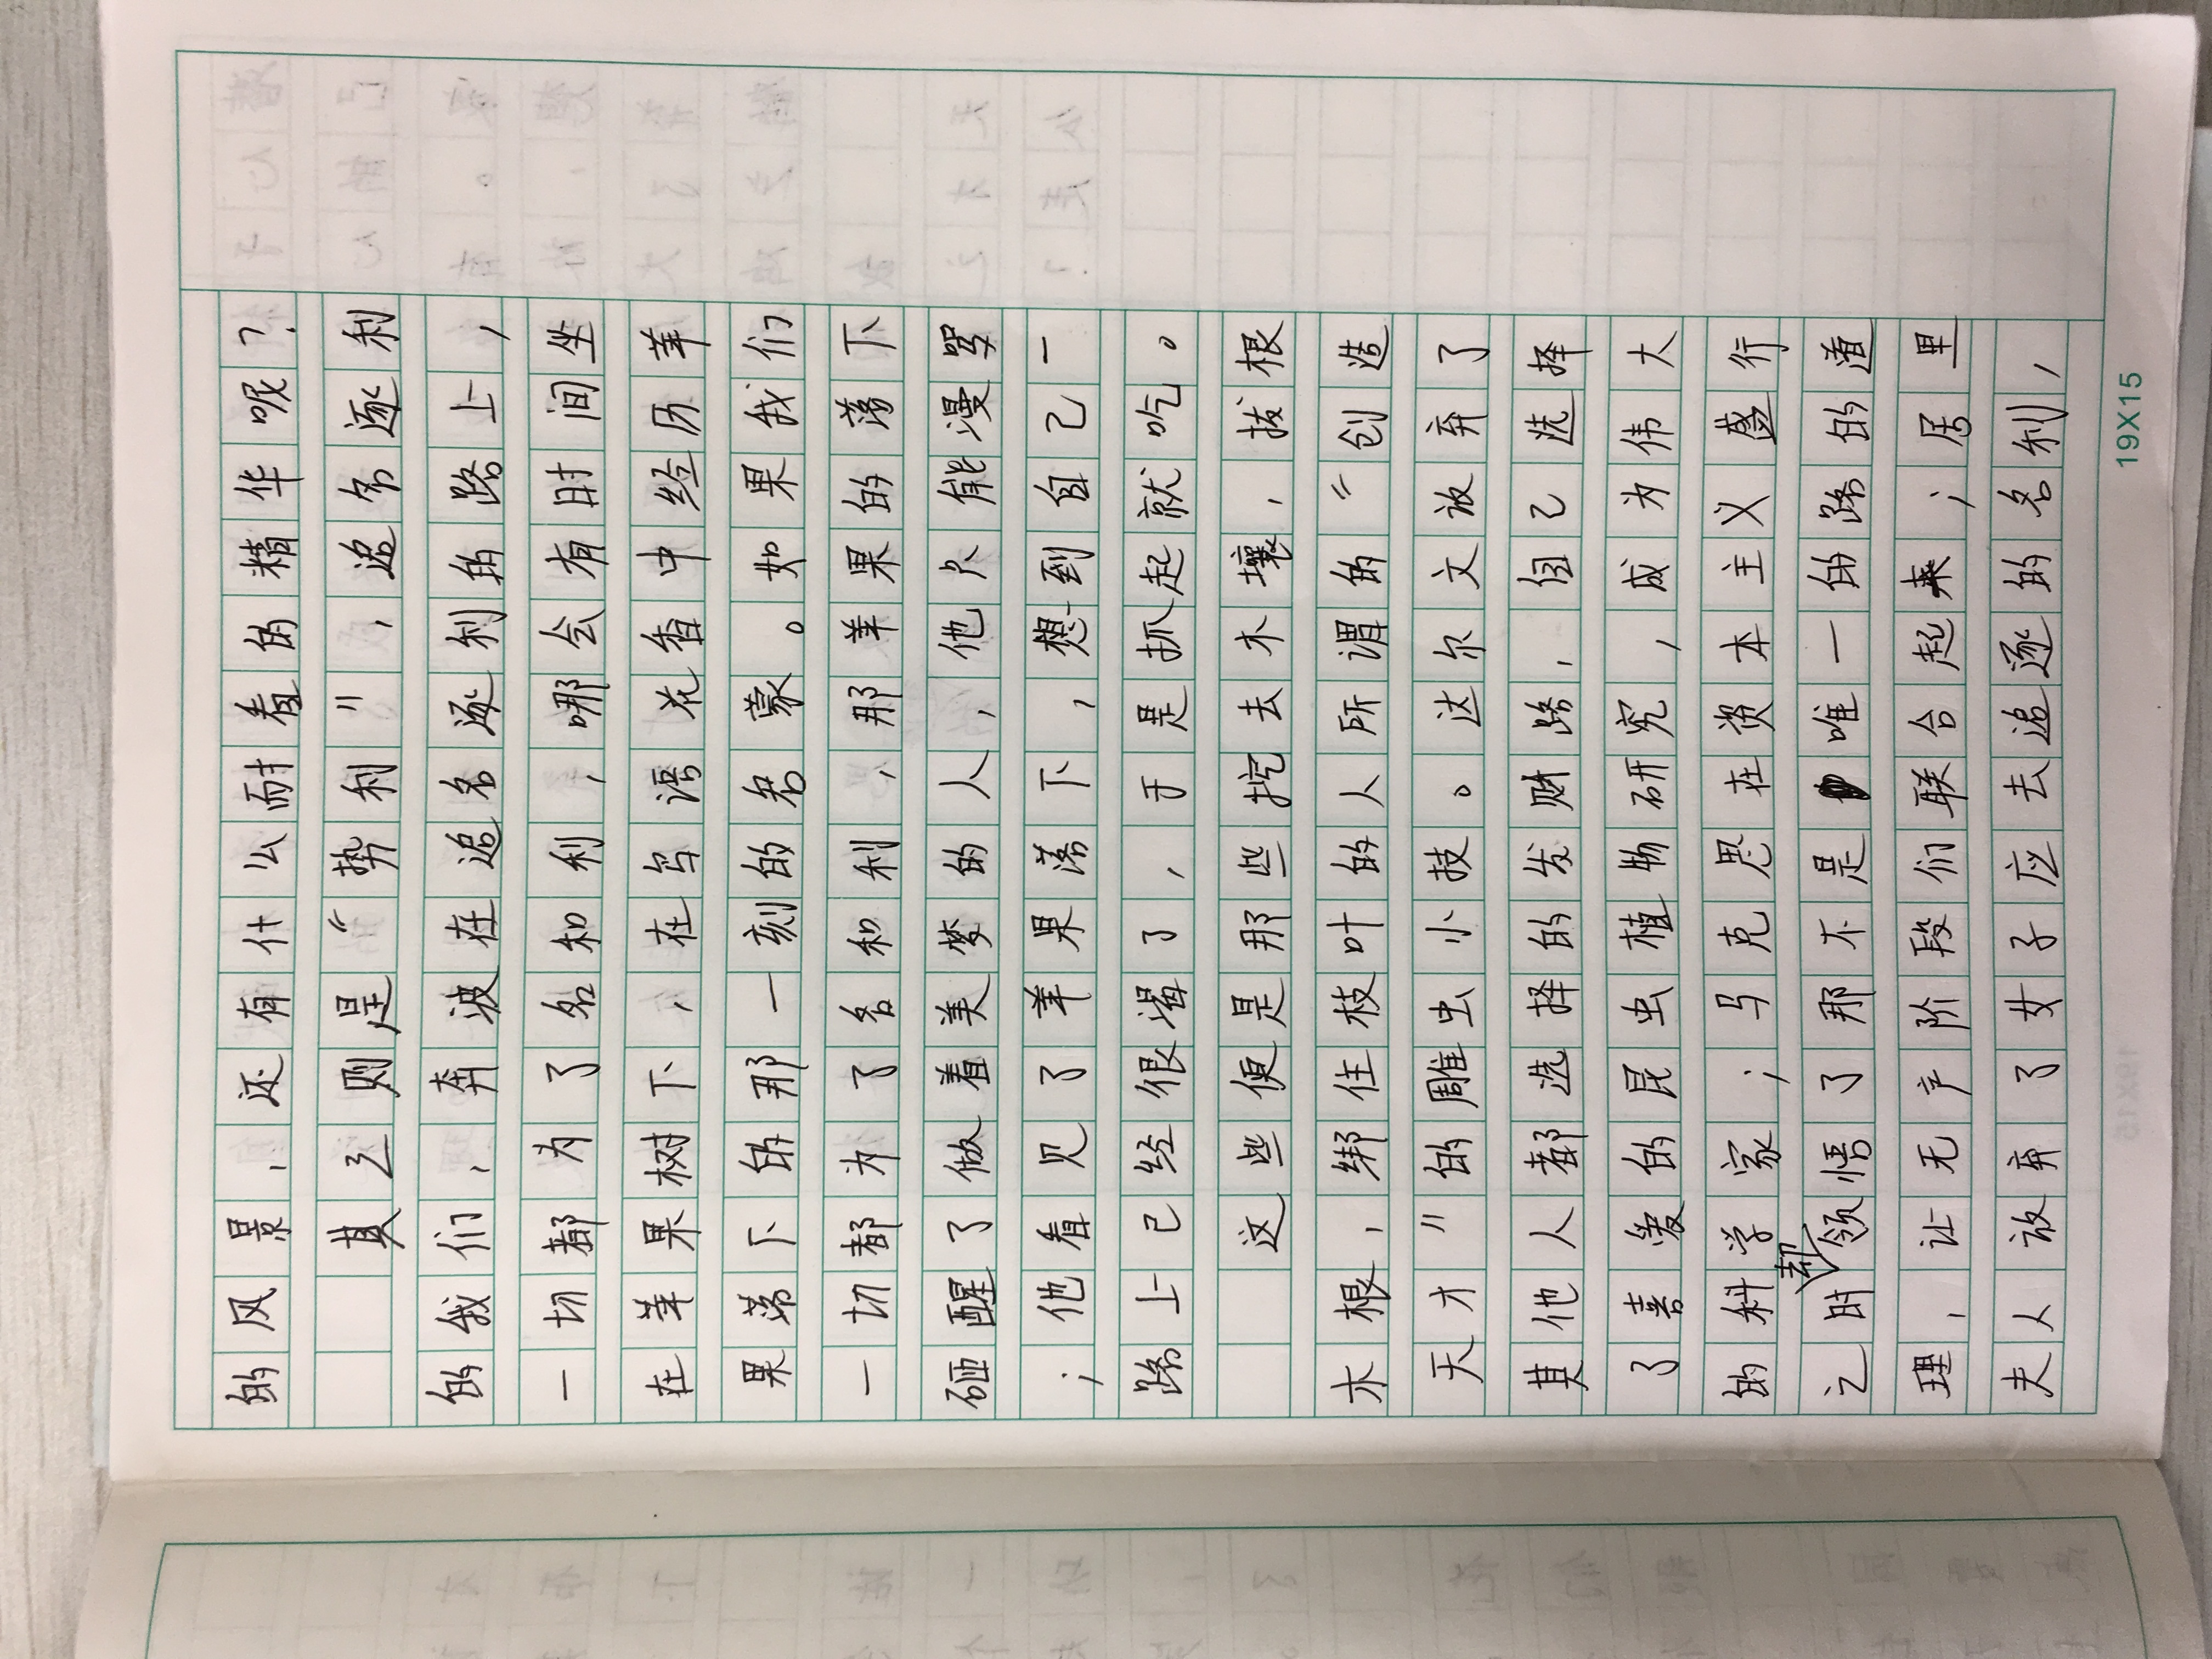 的风景，还有什么耐看的精华呢？
其之则是“势利”，追名逐利
的我们，奔波在追名逐利的路上，
一切都为了名和利，哪会有时间坐
在苹果树下，在鸟语花香中经历苹
果落下的那一刻的名蒙。如果我们
一切都为了名和利，那苹果的落下
砸醒了做着美梦的人，他只能漫骂
；他看见了苹果落下，想到自己一
路上已经很渴了，于是抓起就吃。
这些便是那些挖去木壤，拔根
木根，绑住枝叶的人所谓的“创造
天才”的雕虫小技。达尔文放弃了
其他人都选择的发财路，自己选择
了喜爱的昆虫植物研究，成为伟大
的科学家；马克思在资本主义盛行
之时却领悟了那不是唯一的路的道
理，让无产阶段们联合起来；居里
夫人放弃了女子应去追逐的名利，
19X15